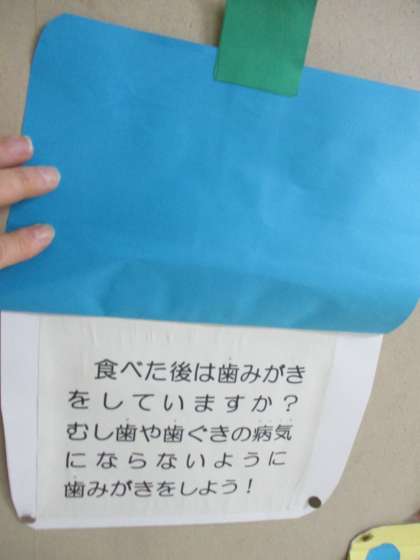 食べた後は歯みがき
をしていますか？
むし歯や歯ぐきの病気
にならないように
歯みがきをしよう！